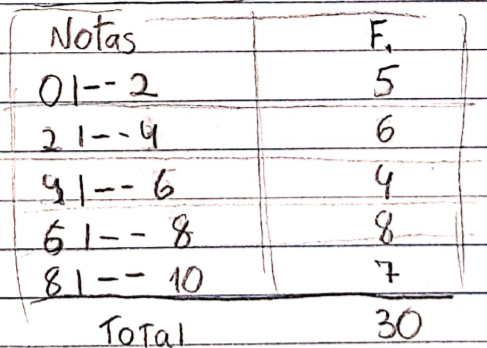 Notas F.
0 |-- 2 5
2 |-- 4 6
4 |-- 6 4
6 |-- 8 8
8 |-- 10 7
Total 30